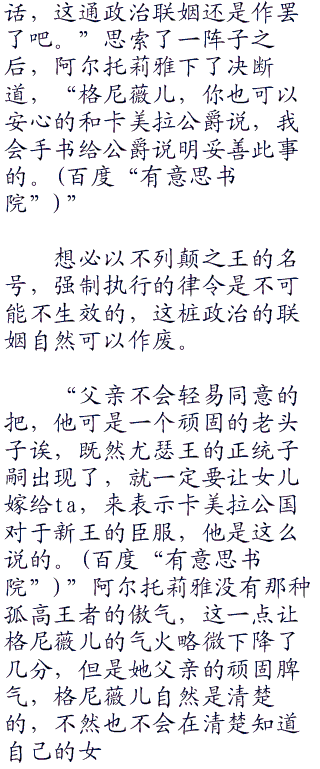 话，这通政治联姻还是作罢
了吧。”思索了一阵子之
后，阿尔托莉雅下了决断
道，“格尼薇儿，你也可以
安心的和卡美拉公爵说，我
会手书给公爵说明妥善此事
的。(百度“有意思书
院”)”
想必以不列颠之王的名
号，强制执行的律令是不可
能不生效的，这桩政治的联
姻自然可以作废。
“父亲不会轻易同意的
把，他可是一个顽固的老头
子诶，既然尤瑟王的正统子
嗣出现了，就一定要让女儿
嫁给ta，来表示卡美拉公国
对于新王的臣服，他是这么
说的。(百度“有意思书
院”)”阿尔托莉雅没有那种
孤高王者的傲气，这一点让
格尼薇儿的气火略微下降了
几分，但是她父亲的顽固脾
气，格尼薇儿自然是清楚
的，不然也不会在清楚知道
自己的女